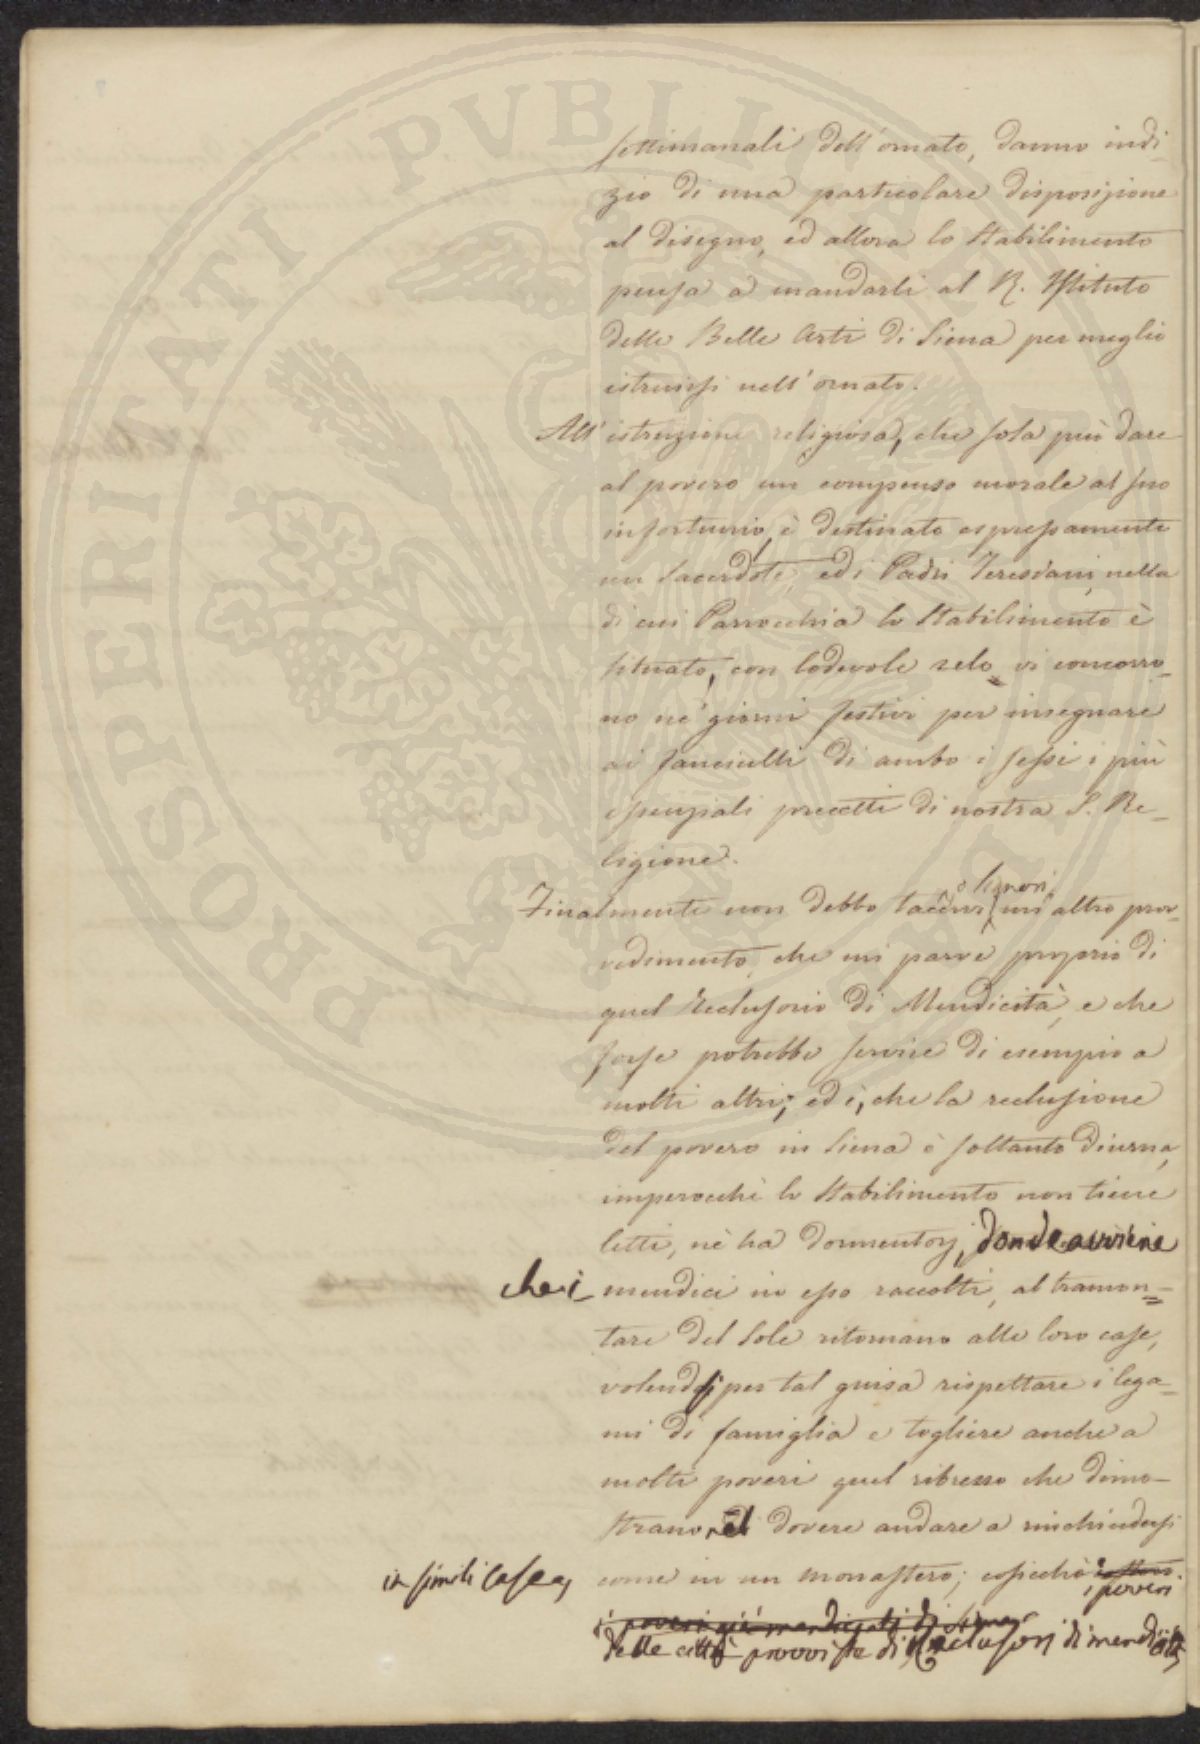 PROSPERITATI PUBLICAE AUGENDAE
settimanali dell'ornato, danno indi-
zio di una particolare disposizione
al disegno, ed allora lo Stabilimento
pensa a mandarli al R. Istituto
delle Belle Arti di Siena per meglio
istruirsi nell'ornato.
All'istruzione religiosa, che sola può dare
al povero un compenso morale al suo
infortunio, è destinato espressamente
un Sacerdote, ed i Padri Teresiani, nella
di cui Parrocchia lo Stabilimento è
situato, con lodevole zelo vi concorro-
no ne' giorni festivi per insegnare
ai fanciulli di ambo i sessi i più
essenziali precetti di nostra S. Re-
ligione.
o Signori,
Finalmente non debbo tacervi un altro prov-
vedimento, che mi parve proprio di
quel Reclusorio di Mendicità, e che
forse potrebbe servire di esempio a
molti altri; ed è, che la reclusione
del povero in Siena è soltanto diurna,
imperocchè lo Stabilimento non tiene
letti, nè ha dormentorj, donde avviene
che i mendici in esso raccolti, al tramon-
tare del Sole ritornano alle loro case,
volendosi per tal guisa rispettare i lega-
mi di famiglia e togliere anche a
molti poveri quel ribrezzo che dimo-
strano, al dovere andare a rinchiudersi
in simili case, come in un monastero; cosicchè
i poveri
i poveri già mendicanti di Siena
delle città provviste di Reclusorj di mendicità,